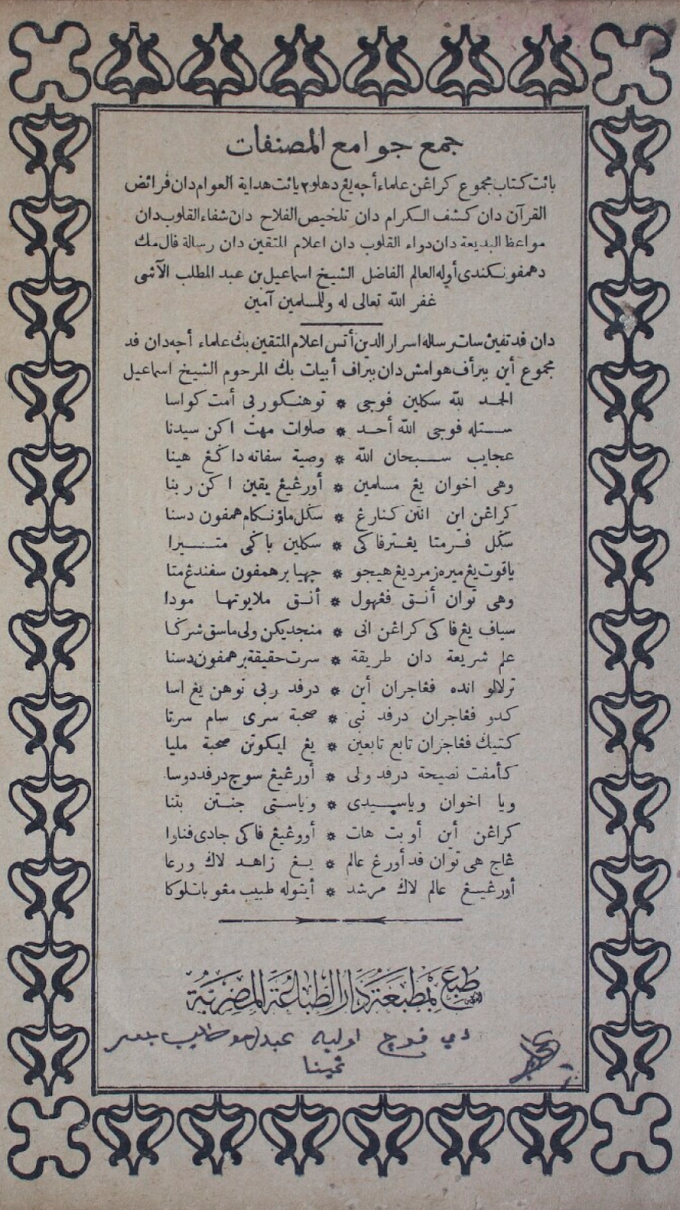 جمع جوامع المصنفات
يائت كتاب مجموع كراڠن علماء أچه يڠ دهلو٢ يائت هداية العوام دان فرائض
القرآن دان كشف الكرام دان تلخيص الفلاح دان شفاء القلوب دان
مواعظ البديعة دان دواء القلوب دان اعلام المتقين دان رسالة قال مك
دهمفونكندى أوله العالم الفاضل الشيخ اسماعيل بن عبد المطلب الآشى
غفر الله تعالى له وللمسلمين آمين
دان فد تفين سات رساله اسرار الدين أتس اعلام المتقين بڬ علماء أچه دان فد
مجموع أين بيرأف هوامش دان بيراف أبيات بڬ المرحوم الشيخ اسماعيل
الحمد لله سكلين فوجى * توهنكو ربى أمت كواسا
ستله فوجى الله أحد * صلوات مهت اكن سيدنا
عجايب سبحان الله * وصية سفاته داكڠ هينا
وهى اخوان يڠ مسلمين * أورڠيڠ يقين اكن ربنا
كراڠن اين انتن كنارڠ * سكل ماؤنكام همفون دسنا
سكل فرمتا يڠترفاكى * سكلين باكى متيرا
ياقوت يڠ ميره زمرد يڠ هيجو * چهيا برهمفون سفندڠ متا
وهى توان أنق فڠهول * أنق ملايوتها مودا
سياف يڠ فاكى كراڠن انى * منجديكن ولى ماسق شركا
علم شريعة دان طريقة * سرت حقيقة برهمفون دسنا
ترلالو انده فڠاجران أين * درفد ربى توهن يڠ اسا
كدو فڠاجران درفد نبى * صحبة سرى سام سرتا
كتيك فڠاجران تابع تابعين * يڠ ايكوتن صحبة مليا
كأمفت نصيحة درفد ولى * أورڠيڠ سوچ درفد دوسا
ويا اخوان وياسيدى * وياستى جنتن بتنا
كراڠن أين أوبت هات * أوورڠيڠ فاكى جادى فنارا
ڠاج هى توان فد أورڠ عالم * يڠ زاهد لاك ورعا
أورڠيڠ عالم لاك مرشد * أيتوله طبيب مڠوباتلوكا
طبع بمطبعة دار الطباعة المصرية